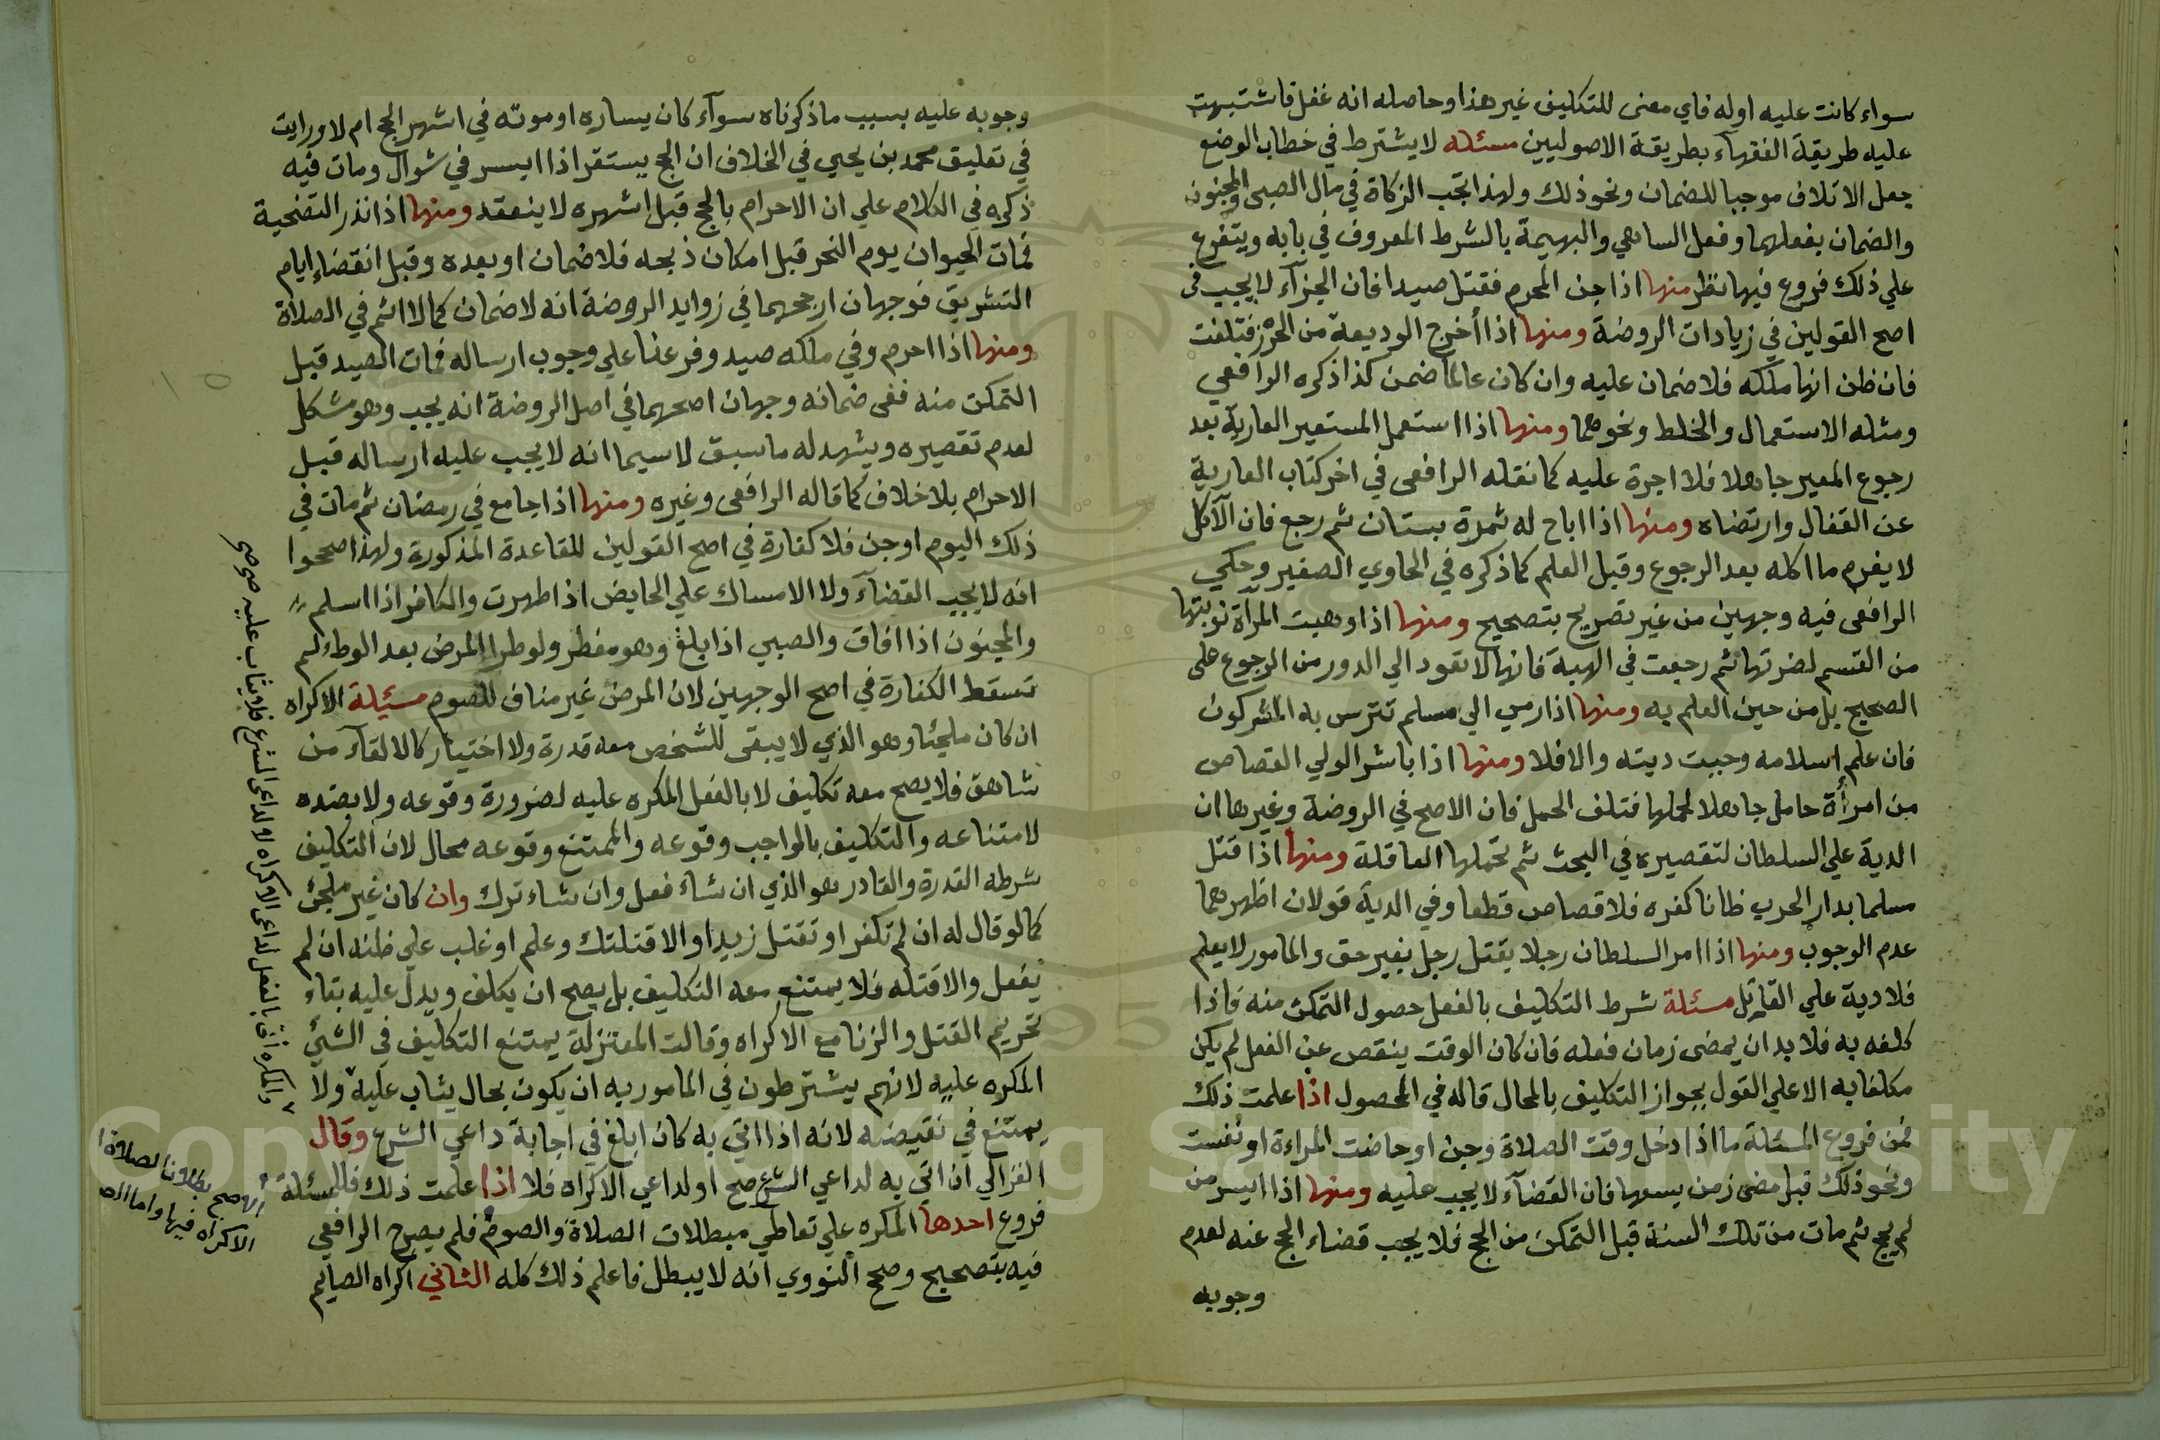 سواء كانت عليه اوله فاي معنى للتكليف غير هذا وحاصله انه غفل فاشتبهت
عليه طريقة الفقهآء بطريقة الاصوليين مسئله لا يشترط في خطاب الوضع
جعل الاتلاف موجبا للضمان ونحو ذلك ولهذا تجب الزكاة في مال الصبي والمجنون
والضمان بفعلهما وفعل الساهي والبهيمة بالشرط المعروف في بابه ويتفرع
علي ذلك فروع فيها نظر منها اذا جن المحرم فقتل صيدا فان الجزآء لا يجب في
اصح القولين في زيادات الروضة ومنها اذا أخرج الوديعة من الحرز فتلفت
فان ظن انها ملكه فلا ضمان عليه وان كان عالما ضمن كذا ذكره الرافعي
ومثله الاستعمال والخلط ونحوهما ومنها اذا استعمل المستعير العارية بعد
رجوع المعير جاهلا فلا اجرة عليه كما نقله الرافعي في اخر كتاب العارية
عن القفال وارتضاه ومنها اذا اباح له ثمرة بستان ثم رجع فان الآكل
لا يغرم ما اكله بعد الرجوع وقبل العلم كما ذكره في الحاوي الصغير وحكي
الرافعي فيه وجهين من غير تصريح بتصحيح ومنها اذا وهبت المرأة نوبتها
من القسم لضرتها ثم رجعت في الهبة فانها لا تعود الي الدور من الرجوع على
الصحيح بل من حين العلم به ومنها اذا رمي الي مسلم تترس به المشركون
فان علم اسلامه وجبت ديته والا فلا ومنها اذا باشر الولي القصاص
من امرأة حامل جاهلا لحملها فتلف الحمل فان الاصح في الروضة وغيرها ان
الدية علي السلطان لتقصيره في البحث ثم تحملها العاقلة ومنها اذا قتل
مسلما بدار الحرب ظانا كفره فلا قصاص قطعا وفي الدية قولان اظهرهما
عدم الوجوب ومنها اذا امر السلطان رجلا بقتل رجل بغير حق والمامور لا يعلم
فلا دية علي القاتل مسئلة شرط التكليف بالفعل حصول التمكن منه فاذا
كلفه به فلا بد ان يمضى زمان فعله فان كان الوقت ينقص عن الفعل لم يكن
مكلفا به الا علي القول بجواز التكليف بالمحال قاله في المحصول اذا علمت ذلك
فمن فروع المسئلة ما اذا دخل وقت الصلاة وجن او حاضت المراءة او نفست
ونحو ذلك قبل مضى زمن يسعها فان القضآء لا يجب عليه ومنها اذا ايسر من
لم يحج ثم مات من تلك السنة قبل التمكن من الحج فلا يجب قضاء الحج عنه لعدم
وجوبه
وجوبه عليه بسبب ما ذكرناه سوآء كان يساره او موته في اشهر الحج ام لا ورايت
في تعليق محمد بن يحيي في الخلاف ان الحج يستقر اذا ايسر في شوال ومات فيه
ذكره في الكلام علي ان الاحرام بالحج قبل اشهره لا ينعقد ومنها اذا نذر التضحية
فمات الحيوان يوم النحر قبل امكان ذبحه فلا ضمان او بعده وقبل انقضاء ايام
التشريق فوجهان ارجحهما في زوايد الروضة انه لا ضمان كما لا اثم في الصلاة
ومنها اذا احرم وفي ملكه صيد وفرعنا علي وجوب ارساله فمات الصيد قبل
التمكن منه ففى ضمانه وجهان اصحهما في اصل الروضة انه يجب وهو مشكل
لعدم تقصيره ويشهد له ما سبق لا سيما انه لا يجب عليه ارساله قبل
الاحرام بلا خلاف كما قاله الرافعي وغيره ومنها اذا جامع في رمضان ثم مات في
ذلك اليوم او جن فلا كفارة في اصح القولين للقاعدة المذكورة ولهذا صححوا
انه لا يجب القضآء ولا الامساك علي الحايض اذا طهرت والكافر اذا اسلم
والمجنون اذا افاق والصبي اذا بلغ وهو مفطر ولو طرا المرض بعد الوطء لم
تسقط الكفارة في اصح الوجهين لان المرض غير مناف للصوم مسئلة الاكراه
ان كان ملجئا وهو الذي لا يبقى للشخص معه قدرة ولا اختيار كالالقآء من
شاهق فلا يصح معه تكليف لا بالفعل المكره عليه لضرورة وقوعه ولا بضده
لامتناعه والتكليف بالواجب وقوعه والممتنع وقوعه محال لان التكليف
شرطه القدرة والقادر هو الذي ان شاء فعل وان شاء ترك وان كان غير ملجئ
كما لو قال له ان لم تكفر او تقتل زيدا والا قتلتك وعلم او غلب علي ظنه ان لم
يفعل والا قتله فلا يمتنع معه التكليف بل يصح ان يكلف ويدل عليه بقاء
تحريم القتل والزنا مع الاكراه وقالت المعتزلة يمتنع التكليف في الشيئ
المكره عليه لانهم يشترطون في المامور به ان يكون بحال يثاب عليه ولا
يمتنع في نقيضه لانه اذا اتي به كان ابلغ في اجابة داعي الشرع وقال
الغزالي ان اتي به لداعي الشرع صح او لداعي الاكراه فلا اذا علمت ذلك فللمسئلة
فروع احدها المكره علي تعاطي مبطلات الصلاة والصوم فلم يصرح الرافعي
فيه بتصحيح وصحح النووي انه لا يبطل فاعلم ذلك كله الثاني اكراه الصايم
والمكره اتى بالفعل لداعي الاكراه لا لداعى الشرع فلا يثاب عليه صح صح
الاصح بطلان الصلاة
الاكراه فيها واما
Copyright © King Saud University
1957